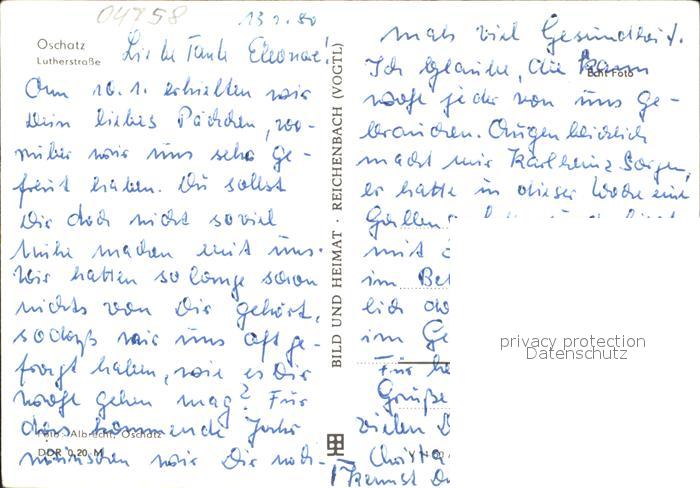 04758
13.1.80
Oschatz
Lutherstraße
Liebe Tante Eleonore!
Am 10.1. erhielten wir
Dein liebes Päckchen, wo-
rüber wir uns sehr ge-
freut haben. Du sollst
Dir doch nicht soviel
Mühe machen mit uns.
Wir hatten so lange schon
nichts von Dir gehört,
sodaß wir uns oft ge-
fragt haben, wie es Dir
wohl gehen mag? Für
das kommende Jahr
Foto: Albrecht, Oschatz
wünschen wir Dir noch-
DDR 0,20 M
BILD UND HEIMAT · REICHENBACH (VOGTL)
mals viel Gesundheit.
Ich glaube, die kann
Echt Foto
wohl jeder von uns ge-
brauchen. Augenblicklich
macht mir Karlheinz Sorgen,
er hatte in dieser Woche eine
Gallen
mit
im Bet
lich do
im Ge
Für he
Grüße
vielen D
Christa
kennst Du
privacy protection
Datenschutz